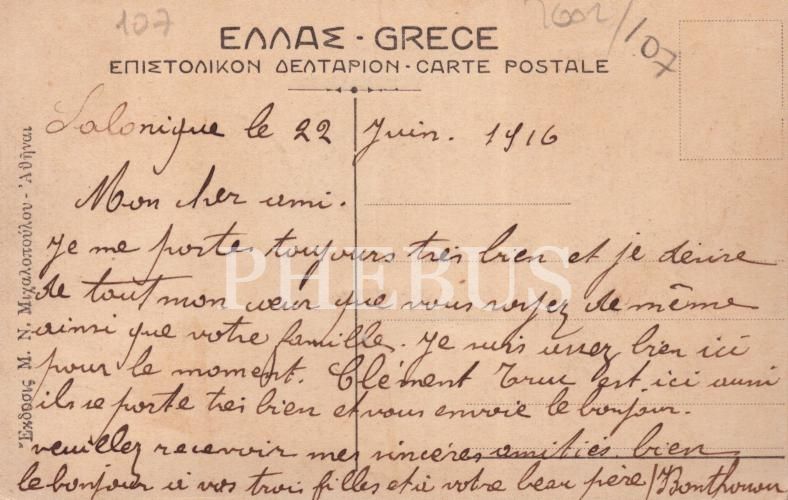 107
2602/107
ΕΛΛΑΣ - GRECE
ΕΠΙΣΤΟΛΙΚΟΝ ΔΕΛΤΑΡΙΟΝ - CARTE POSTALE
Salonique le 22 Juin. 1916
Mon cher ami.
Je me porte toujours très bien et je désire
de tout mon cœur que vous soyez de même
ainsi que votre famille. Je suis assez bien ici
pour le moment. Clément Truc est ici aussi
ils se porte très bien et vous envoie le bonjour.
veuillez recevoir mes sincères amitiés bien
le bonjour à vos trois filles et à votre beau père /
Ἔκδοσις Μ. Ν. Μιχαλοπούλου - Ἀθῆναι
PHEBUS